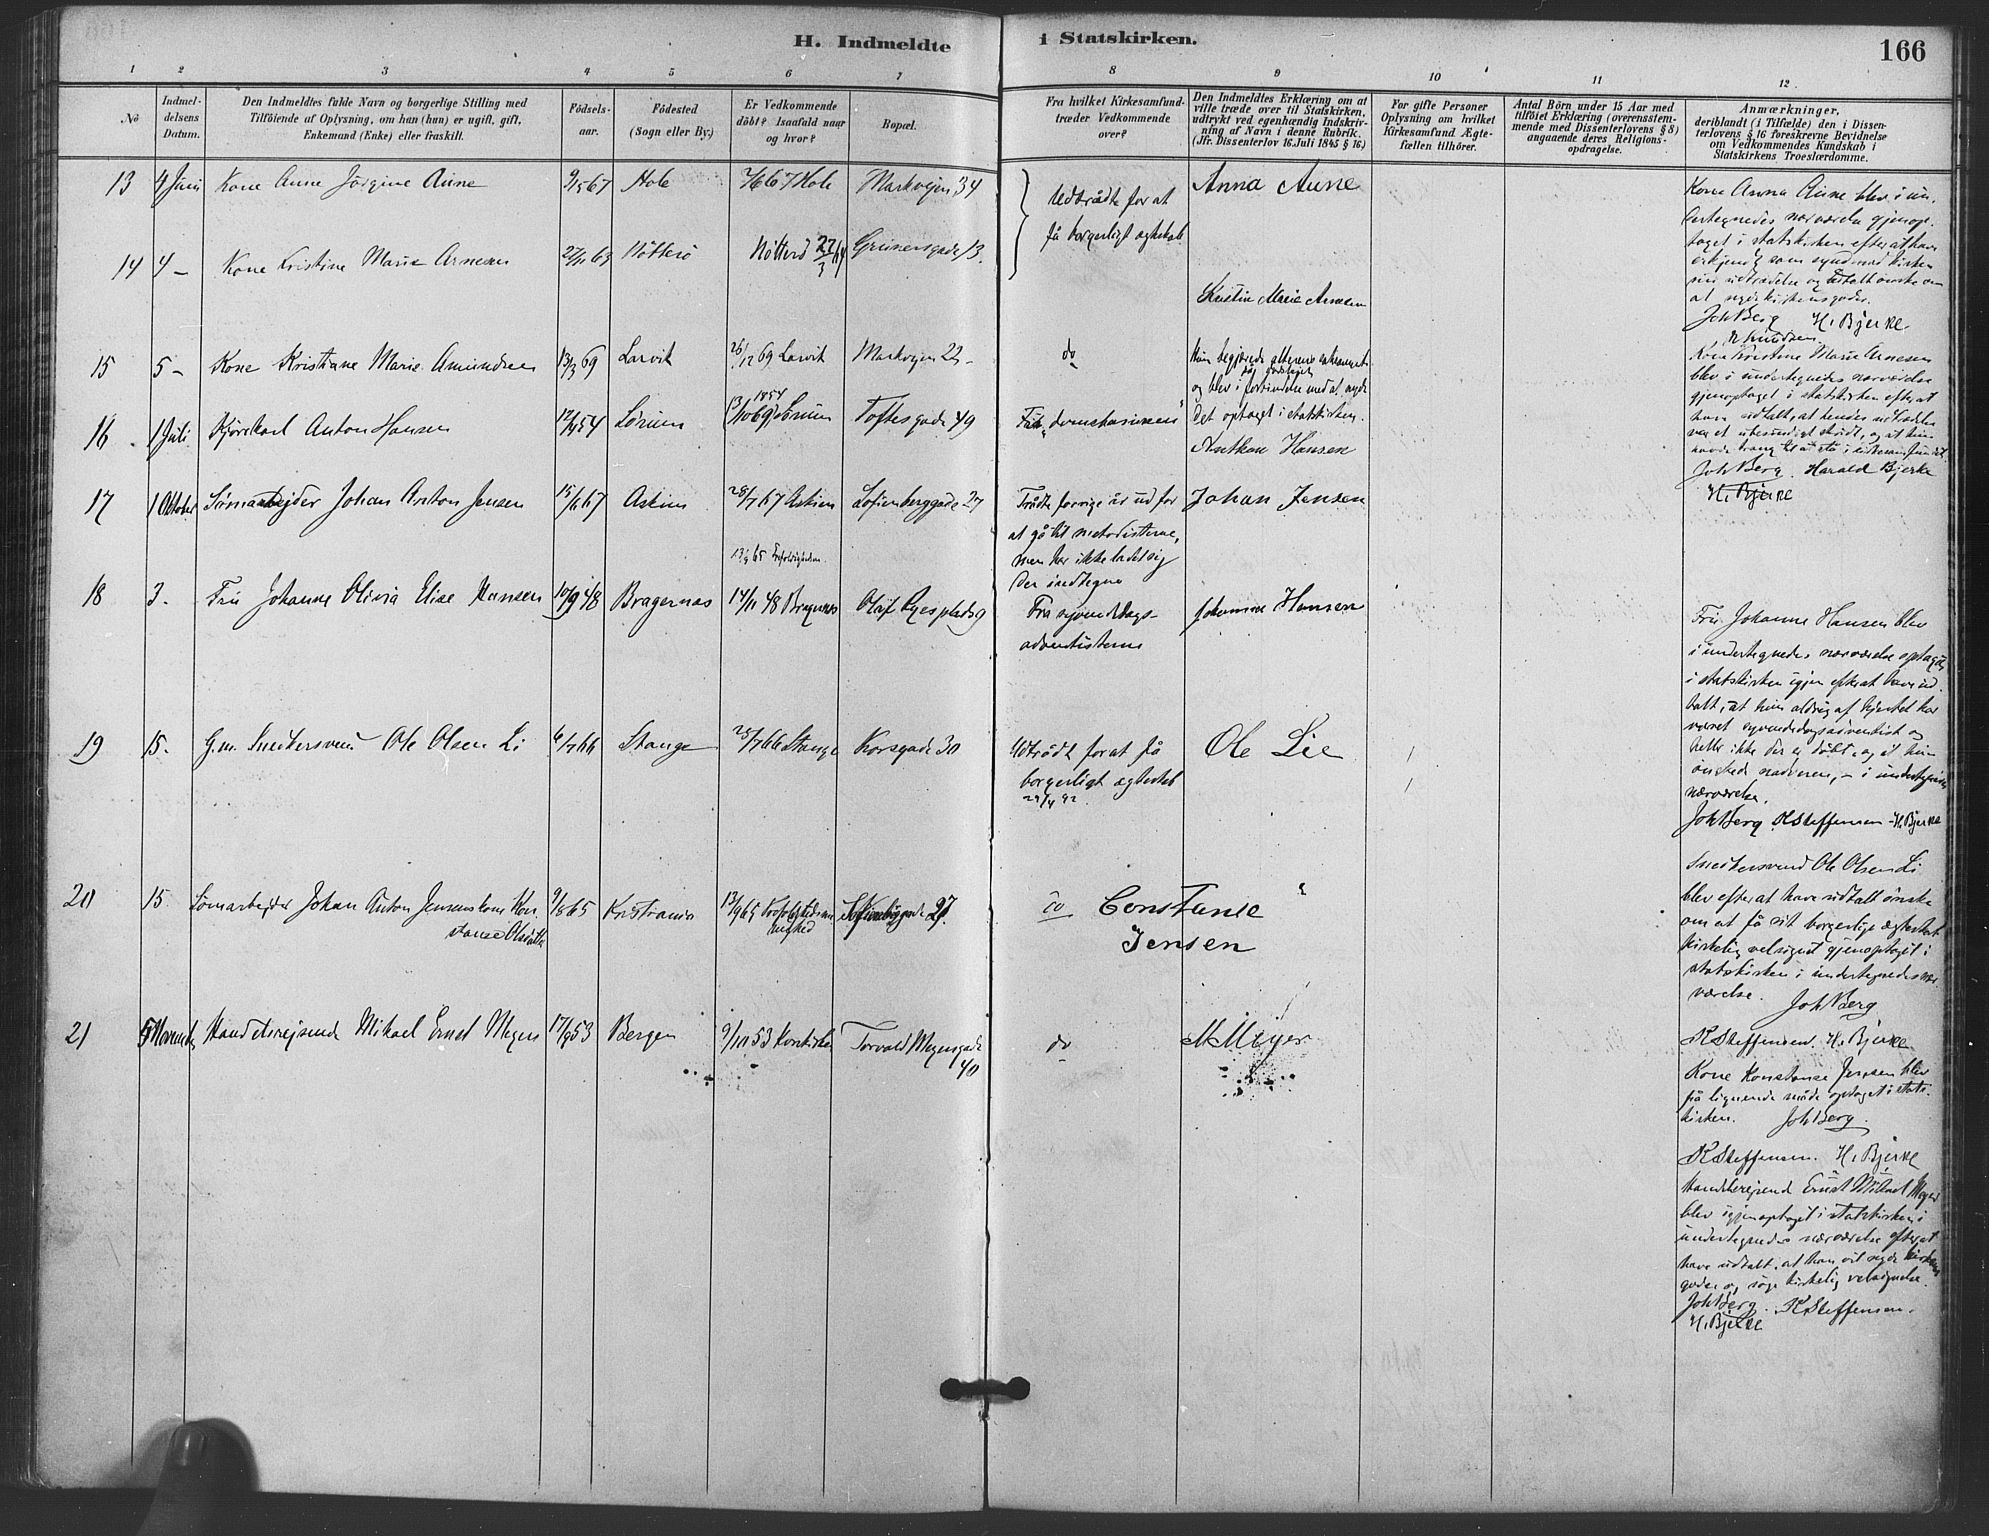 H. Indmeldte i Statskirken.
166
1 2 3 4 5 6 7 8 9 10 11 12
No
Indmel-
delsens
Datum.
Den Indmeldtes fulde Navn og borgerlige Stilling med
Tilföiende af Oplysning, om han (hun) er ugift, gift,
Enkemand (Enke) eller fraskilt.
Födsels-
aar.
Födested
(Sogn eller By.)
Er Vedkommende
döbt? Isaafald naar
og hvor?
Bopæl.
Fra hvilket Kirkesamfund
træder Vedkommende
over?
Den Indmeldtes Erklæring om at
ville træde over til Statskirken,
udtrykt ved egenhændig Indskriv-
ning af Navn i denne Rubrik.
(Jfr. Dissenterlov 16 Juli 1845 § 16)
For gifte Personer
Oplysning om hvilket
Kirkesamfund Ægte-
fællen tilhörer.
Antal Börn under 15 Aar med
tilföiet Erklæring (overensstem-
mende med Dissenterlovens § 8)
angaaende deres Religions-
opdragelse.
Anmærkninger,
deriblandt (i Tilfælde) den i Dissen-
terlovens § 16 foreskrevne Bevidnelse
om Vedkommendes Kundskab i
Statskirkens Troeslærdomme.
13 4 Juni Kone Anne Jörgine Aune 9/5 67 Hole 7/6 67 Hole Markvejen 34
Udtrådte for at
få borgerligt ægteskab
Anna Aune
Kone Anna Aune blev i un-
dertegnedes nærværelse gjenop-
taget i statskirken efter at have
erkjendt som synd mod kirken
sin udtrædelse og udtalt önske om
at nyde kirkens goder.
Joh Berg H. Bjerke
Knudsen
14 4 - Kone Kristine Marie Arnesen Nötterö Nötterö Grünersgade 13.
Kristin Marie Arnesen
Kone Kristine Marie Arnesen
blev i undertegnedes nærværelse
gjenoptaget i statskirken efter at
have udtalt, at hendes udtrædelse
var et ubesindigt skridt, og at hun
havde trang til at stå i kirkesamfundet.
Joh Berg. Harald Bjerke
H. Bjerke
15 5 - Kone Kristiane Marie Amundsen 13/3 69 Larvik 26/12 69 Larvik Markvejen 22 -
do
Hun begjærede alterens sakrament
og blev i forbindelse med at nyde
det optaget i statskirken.
16 1 Juli Kjörekarl Anton Hansen Sörum 1854 Sörum Toftesgade 49
Anthon Hansen
17 1 Oktober Sömarbejder Johan Anton Jensen 15/6 67 Askim 28/7 67 Askim Sofienberggade 27
Trådte forrige år ud for
at gå til metodisterne,
men har ikke ladet sig
der indtegne
Johan Jensen
18 3. Fru Johanne Olivia Elise Hansen 10/9 48 Bragernæs 14/11 48 Bragernæs Olaf Ryesplads 9
Fra syvendedags-
adventisterne
Johanne Hansen
Fru Johanne Hansen blev
i undertegnedes nærværelse optaget
i statskirken igjen efter at have ud-
talt, at hun aldrig af hjertet har
været syvendedagsadventist og
heller ikke der er döbt, og at hun
önskede nadveren, - i undertegnedes
nærværelse.
Joh Berg K Steffensen - H. Bjerke
19 15. G.m. Snedkersvend Ole Olsen Li 6/7 66 Stange 25/7 66 Stange Korsgade 30
Udtrådt for at få
borgerligt ægteskab
29/4 92
Ole Lie
Snedkersvend Ole Olsen Li
blev efter at have udtalt önske
om at få sit borgerlige ægteskab
kirkelig velsignet gjenoptaget i
statskirken i undertegnedes nær-
værelse. Joh Berg
K Steffensen. H. Bjerke
20 15. Sömarbejder Johan Anton Jensens kone Kon-
stanse Olsdatter 9/8 65 Kristiania 13/9 65 Trefoldigheds-
menighed Sofienberggade 27.
do
Constanse
Jensen
Kone Konstanse Jensen blev
på lignende måde optaget i stats-
kirken. Joh Berg.
K Steffensen. H. Bjerke
21 5 November Handelsrejsende Mikael Ernst Meyer 17/9 53 Bergen 9/10 53 Korskirken Torvald Meyersgade
40
do
M Meyer
Handelsrejsende Ernst Mikael Meyer
blev igjenoptaget i statskirken i
undertegnedes nærværelse efter at
have udtalt, at han vil nyde kirkens
goder og söge kirkelig velsignelse.
Joh Berg. K Steffensen.
H. Bjerke